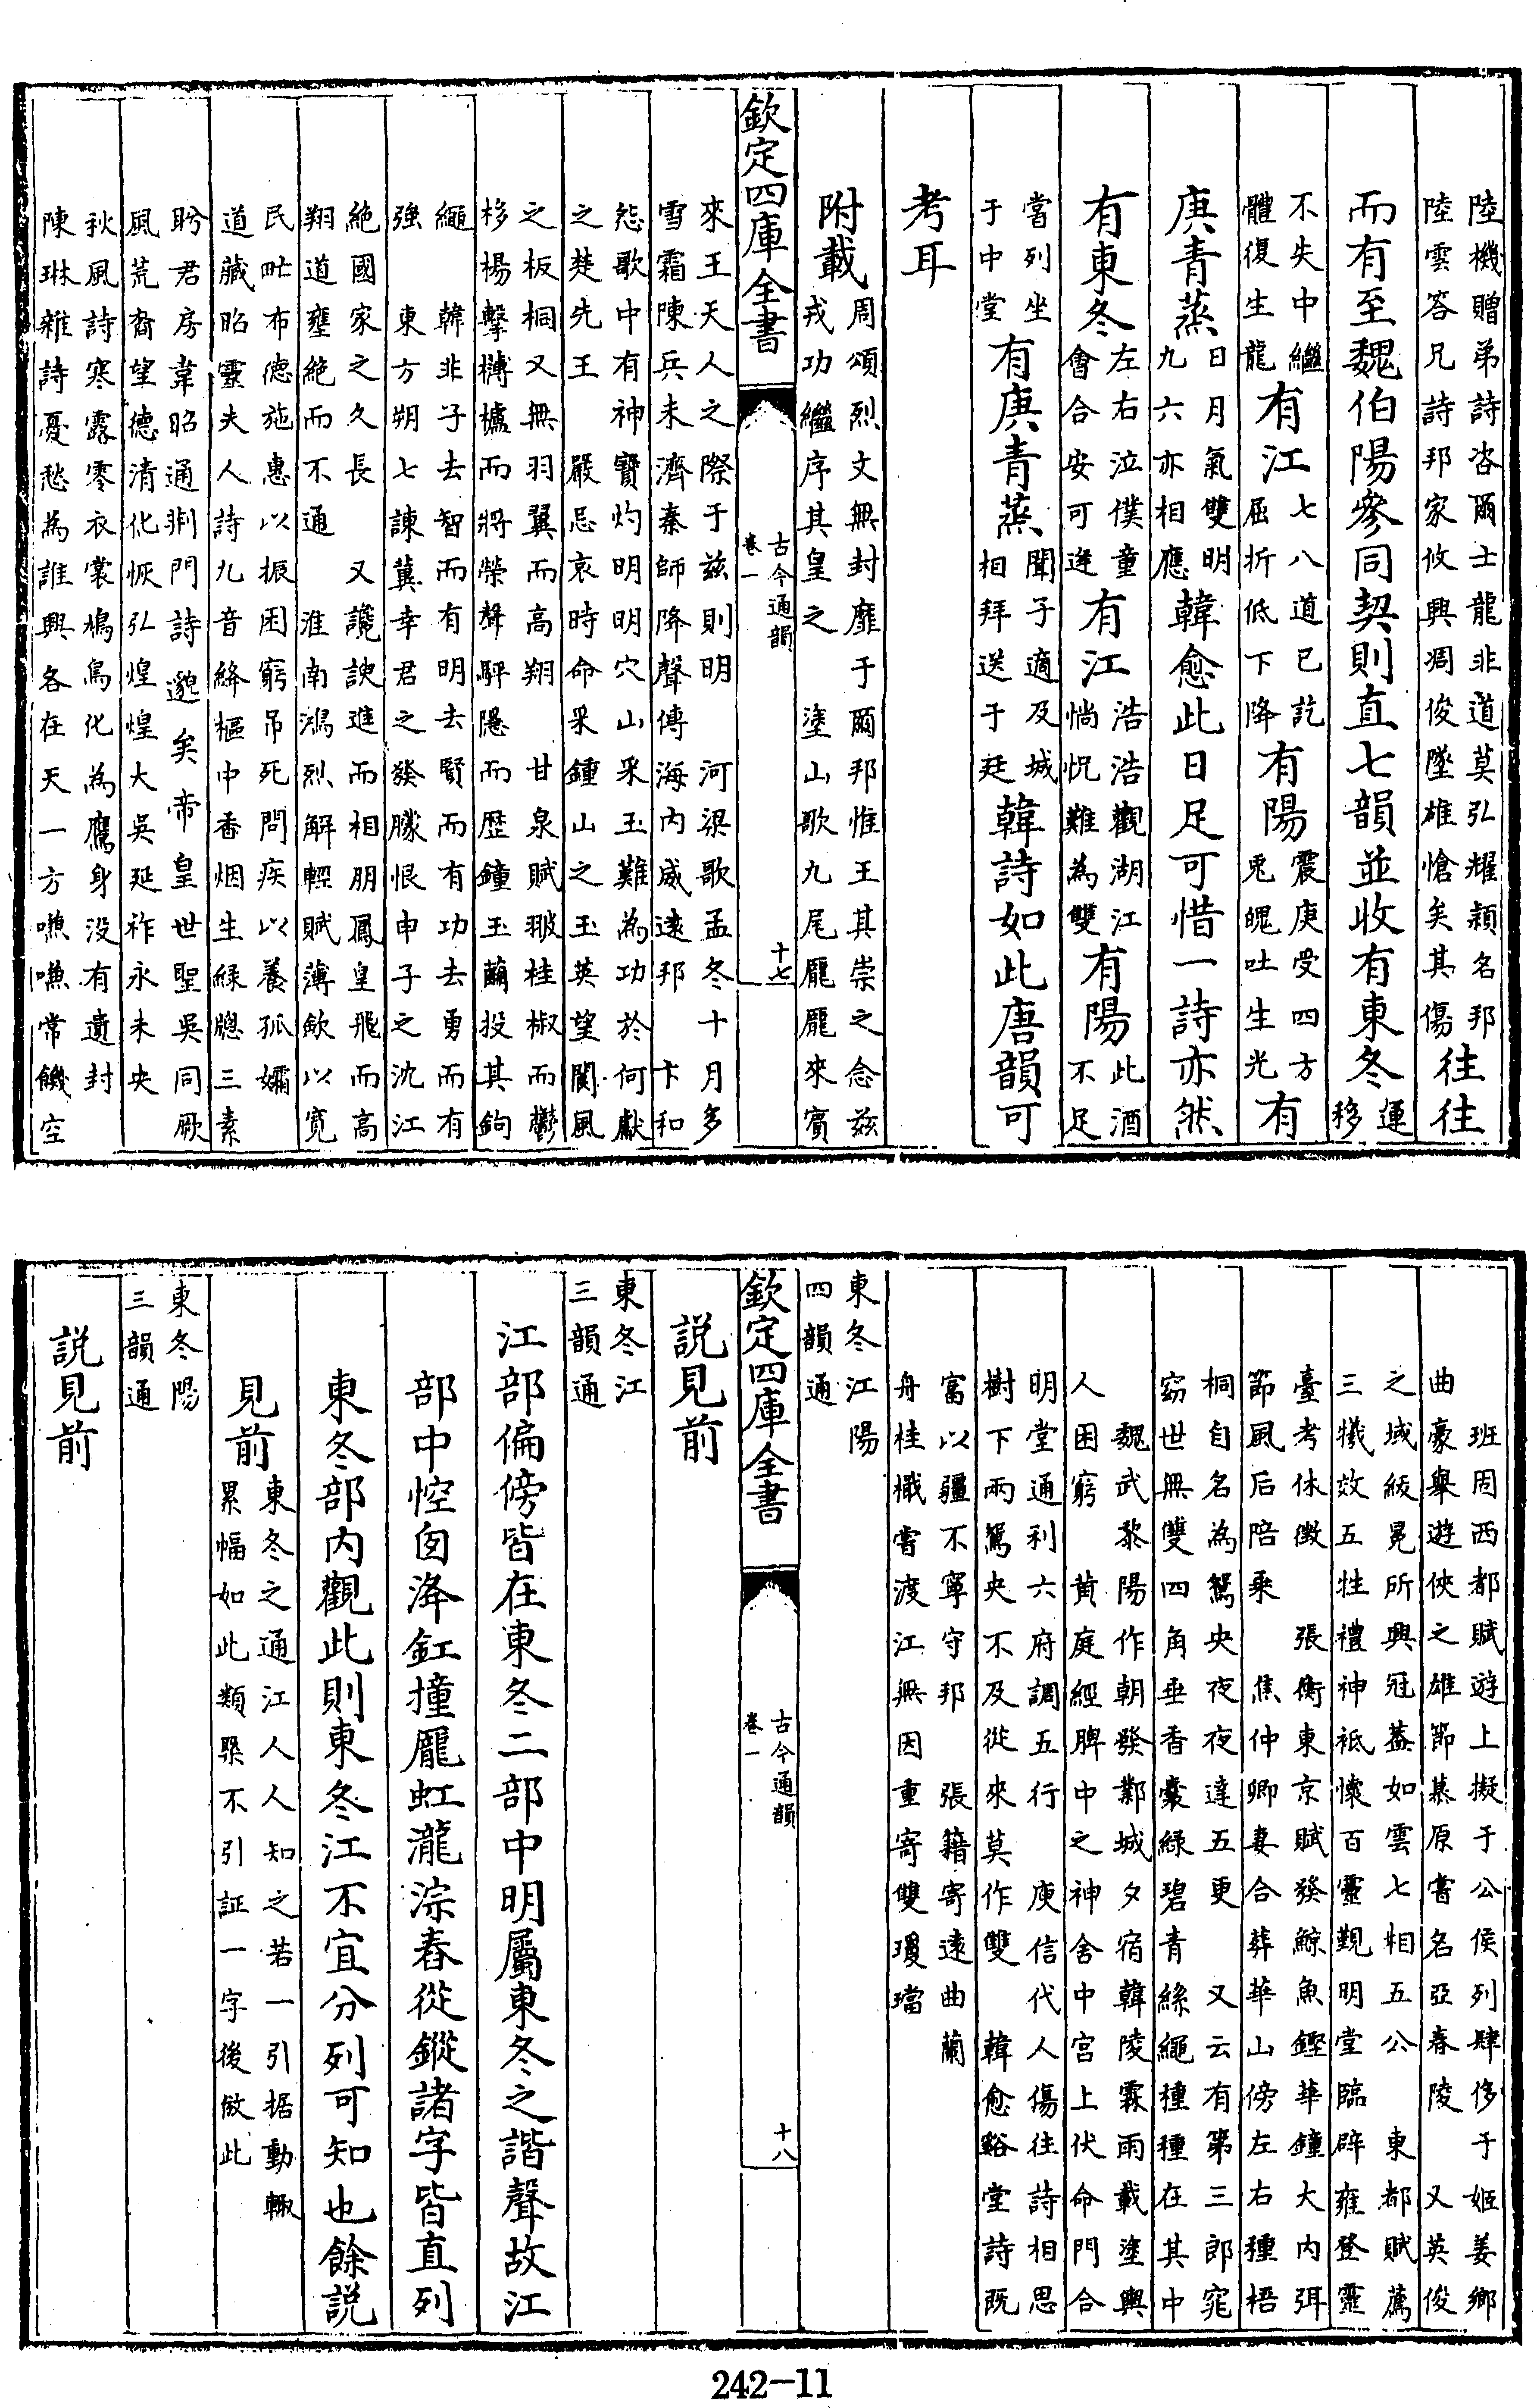 陸機贈弟詩咨爾士龍非道莫弘耀穎名邦
陸雲答兄詩邦家攸興凋俊墜雄愴矣其傷往往
而有至魏伯陽參同契則直七韻並收有東冬運
移
不失中繼
體復生龍有江七八道已訖
屈折低下降有陽震庚受四方
兎魄吐生光有
庚青蒸日月氣雙明
九六亦相應韓愈此日足可惜一詩亦然
有東冬左右泣僕童
會合安可逢有江浩浩觀湖江
惝怳難為雙有陽此酒
不足
嘗列坐
于中堂有庚青蒸聞子適及城
相拜送于廷韓詩如此唐韻可
考耳
附載周頌烈文無封靡于爾邦惟王其崇之念茲
戎功繼序其皇之　塗山歌九尾龐龐來賓
欽定四庫全書
古今通韻
卷一
十七
來王天人之際于兹則明　河梁歌孟冬十月多
雪霜陳兵未濟秦師降聲傳海內威遠邦　卞和
怨歌中有神寶灼明明穴山采玉難為功於何獻
之楚先王　嚴忌哀時命采鍾山之玉英望閬風
之板桐又無羽翼而高翔　甘泉賦翍桂椒而鬱
栘楊擊欂櫨而將榮聲駍隱而歷鐘玉蘭投其鉤
繩　韓非子去智而有明去賢而有功去勇而有
強　東方朔七諫冀幸君之發矇恨申子之沈江
絶國家之久長　又讒諛進而相朋鳳皇飛而高
翔道壅絶而不通　淮南鴻烈解輕賦薄斂以寛
民氓布德施惠以振困窮弔死問疾以養孤孀
道藏昭靈夫人詩九音絳樞中香烟生綠牕三素
盻君房韋昭通荆門詩邈矣帝皇世聖吳同厥
風荒裔望德清化恢弘煌煌大吳延祚永未央
秋風詩寒露零衣裳鳩鳥化為鷹身没有遺封
陳琳雜詩憂愁為誰興各在天一方嗛嗛常饑空
班固西都賦遊上擬于公侯列肆侈于姬姜鄉
曲豪舉遊俠之雄節慕原嘗名亞春陵　又英俊
之域紱冕所興冠蓋如雲七相五公　東都賦薦
三犧效五牲禮神祗懷百靈覲明堂臨辟雍登靈
臺考休徴　張衡東京賦發鯨魚鏗華鐘大内弭
節風后陪乘　焦仲卿妻合葬華山傍左右種梧
桐自名為鴛央夜夜達五更　又云有第三郎窕
窈世無雙四角垂香囊綠碧青絲繩種種在其中
魏武黎陽作朝發鄴城夕宿韓陵霖雨載塗輿
人困窮　黄庭經脾中之神舍中宮上伏命門合
明堂通利六府調五行　庾信代人傷往詩相思
樹下兩鴛央不及從來莫作雙　韓愈谿堂詩既
富以疆不寧守邦　張籍寄遠曲蘭
舟桂檝嘗渡江無因重寄雙瓊璫
東冬江陽
四韻通
欽定四庫全書
古今通韻
卷一
十八
説見前
東冬江
三韻通
江部偏傍皆在東冬二部中明屬東冬之諧聲故江
部中悾囱洚釭撞龎虹瀧淙舂從鏦諸字皆直列
東冬部内觀此則東冬江不宜分列可知也餘説
見前東冬之通江人人知之若一引据動輙
累幅如此類槩不引証一字後倣此
東冬陽
三韻通
説見前
242-11